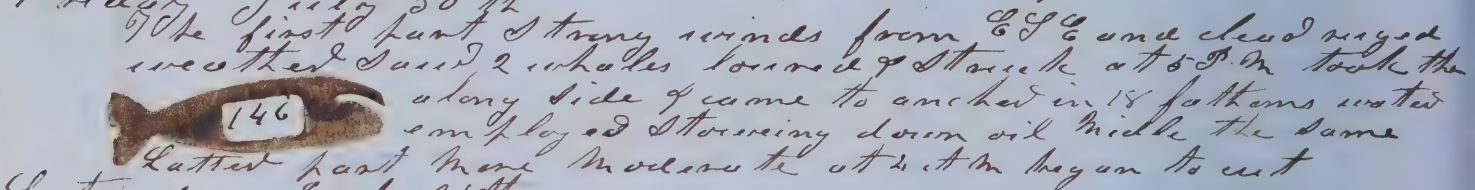 Friday July 30th
The first part Strong winds from ESE and clear ruged
weather Saw 2 whales lowred & Struck at 5 P.M took the
along Side & came to ancher in 18 fathoms water
146
employed Stoweing down oil Middle the Same
Latter part More Moderate at 4 A M began to cut